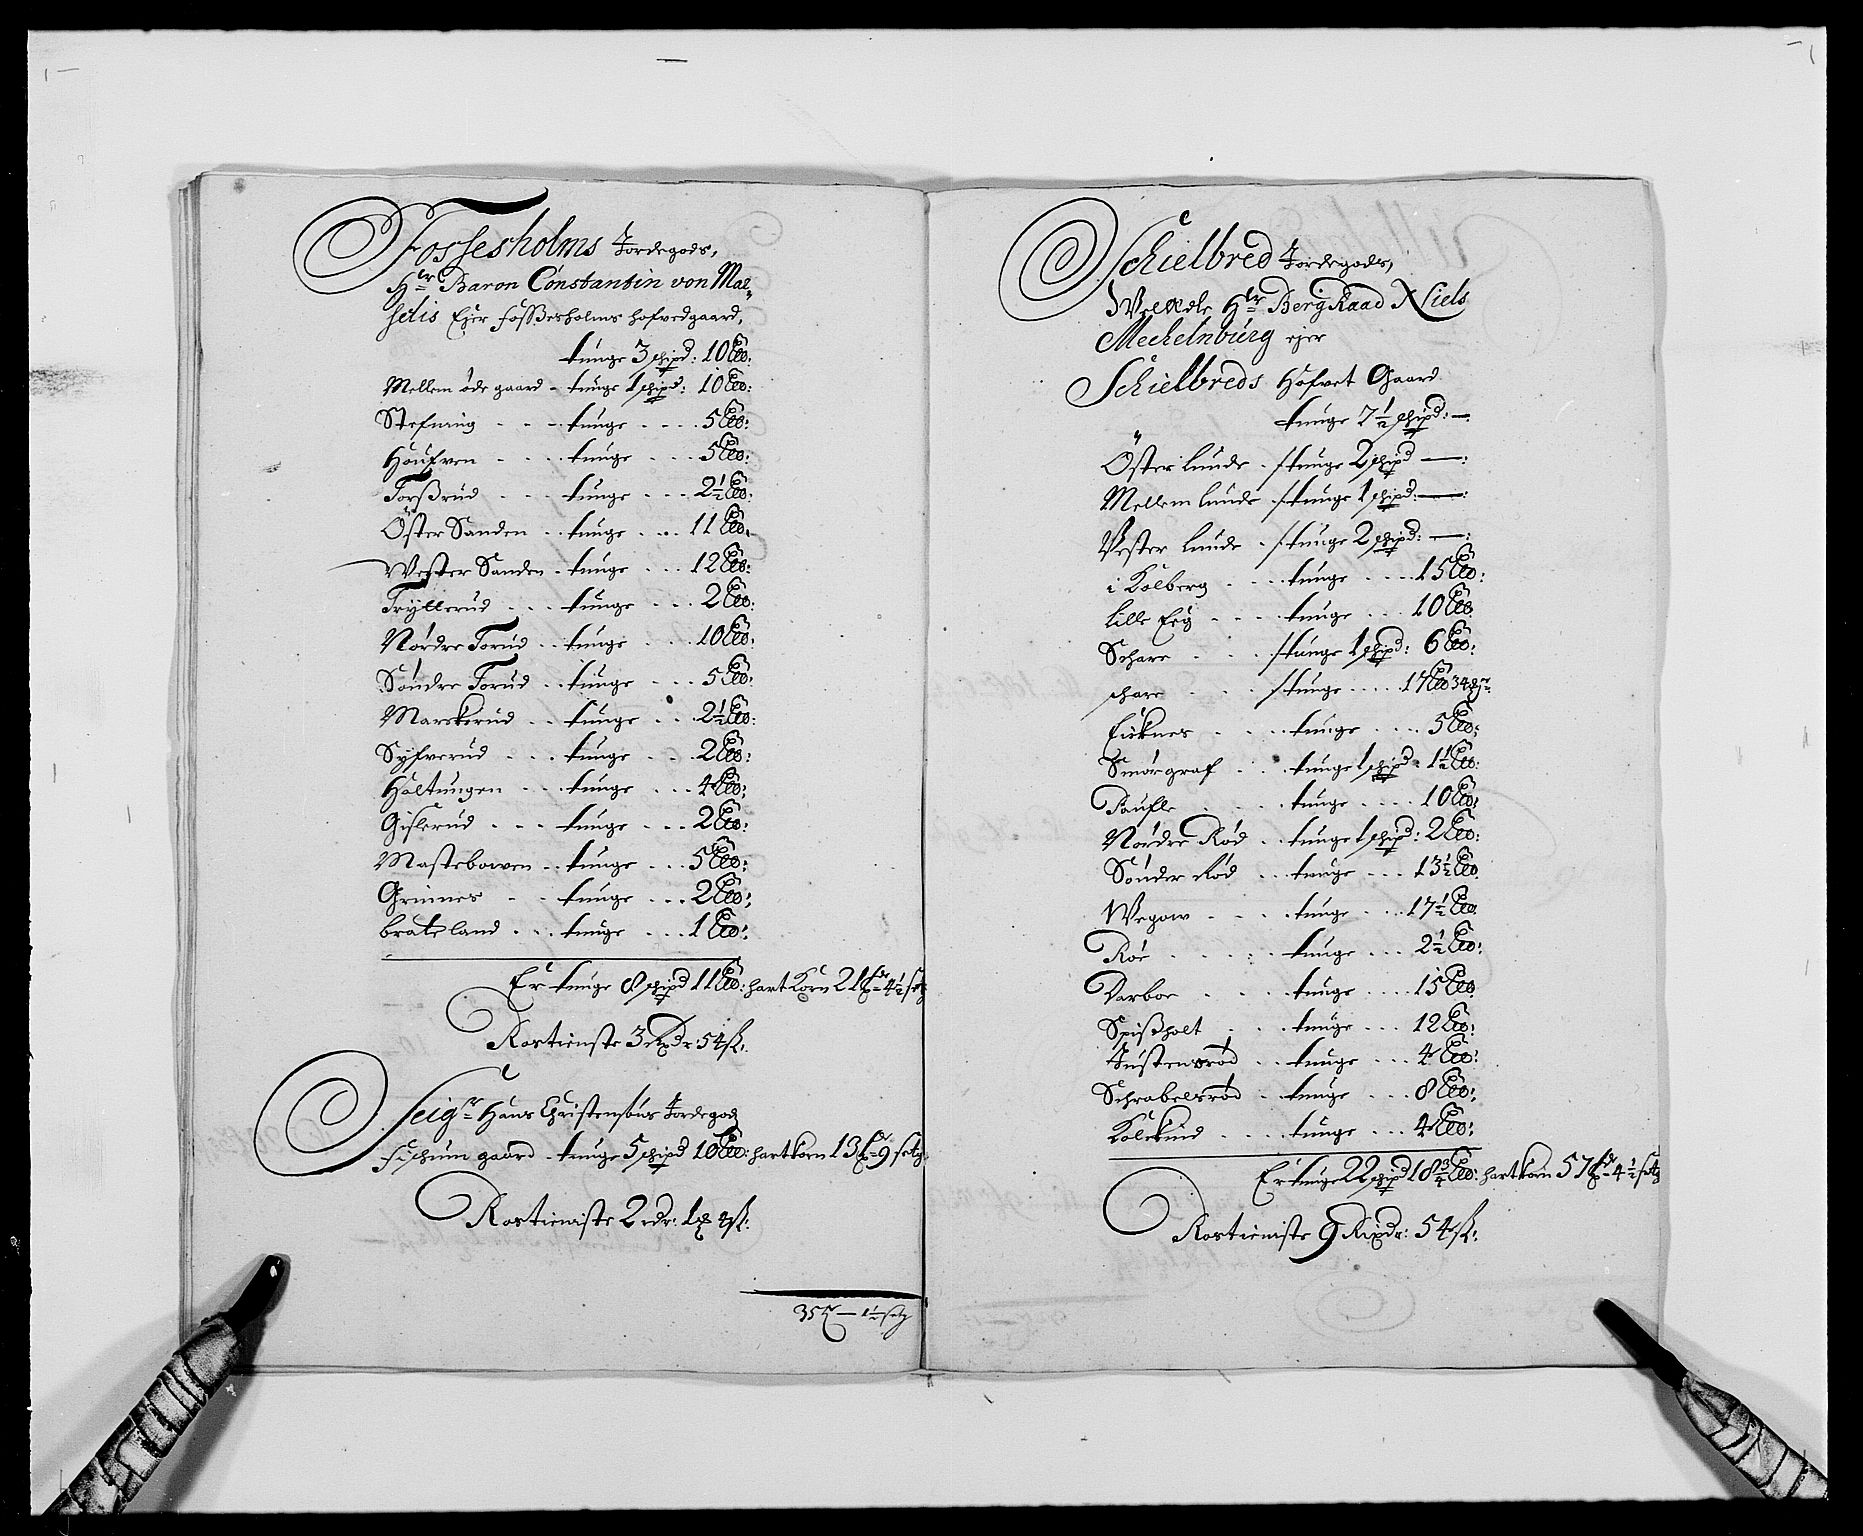 Fossesholms Jordegods,
Hr Baron Constantin von Mar-
selis Ejer Fossesholms hofvedgaard,
tunge 3 schipd: 10 Lb:
Mellem øde gaard - tunge 1 schipd: 10 Lb:
Stefning - - - tunge - - - - 5 Lb:
Houfven - - - - tunge - - - 5 Lb:
Torsrud - - - tunge - - - 2½ Lb:
Öster Sanden - - tunge - - - 11 Lb:
Wester Sanden - tunge - - - 12 Lb:
Tryllerud - - - tunge - - - 2 Lb:
Nordre Torud - - tunge - - - 10 Lb:
Søndre Torud - - tunge - - - 5 Lb:
Marskerud - - tunge - - - 2½ Lb:
Sylfverud - - - tunge - - - 2 Lb:
Holtungen - - - tunge - - - 4 Lb:
Gislerud - - - tunge - - - 2 Lb:
Mastebowen - - tunge - - - 5 Lb:
Grimnes - - tunge - - - 2 Lb:
brateland - - - tunge - - - 1 Lb:
Er tunge 8 schipd 11 Lb: hartkorn 21 tdr 4½ setg
Rostieniste 3 Rixdr: 54 sk:
Seigr Hans Christensøns Jordegods
Fischum gaard - tunge 5 schipd 10 Lb: hartkorn 13 t 9 setg
Rostieniste 2 rdr: 1 4 sk:
35 t — 1½ setg
Schielbred Jordegods,
WelEdle Hr BergRaad Niels
Mechelnburg ejer
Schielbreds Hofvet Gaard
tunge 7½ schipd: —
Öster lunde - tunge 2 schipd —:
Mellem lunde - tunge 1 schipd: —:
Vester lunde - tunge 2 schipd: —:
i Kolberg - - - - tunge - - - - 15 Lb:
lille Eeg - - - - tunge - - - 10 Lb
Schare - - - - tunge 1 schipd: 6 Lb:
schare - - - - tunge - - - - 17 Lb 3
Eiknes - - - - tunge - - - - 5 Lb:
Smørgraf - - - tunge 1 schipd - 1½ Lb:
Toufle - - - - tunge - - - - 10 Lb:
Nordre Rød - - tunge 1 schipd: 2 Lb:
Sønder Rød - - - tunge - - - 13½ Lb
Wegow - - - - tunge - - - - 17½ Lb
Røe - - - - - tunge - - - 2½ Lb:
Darboe - - - - tunge - - - - 15 Lb
Spisholt - - - tunge - - - 12 Lb:
Justensrød - - tunge - - - 4 Lb:
Schrabelsrød - tunge - - - 8 Lb:
Kolekind - - - - tunge - - - 4 Lb:
Er tunge 22 schipd 18¾ Lb: hartkorn 57 tdr 4½ setg
Rostieniste 9 Rixdr: 54 sk: